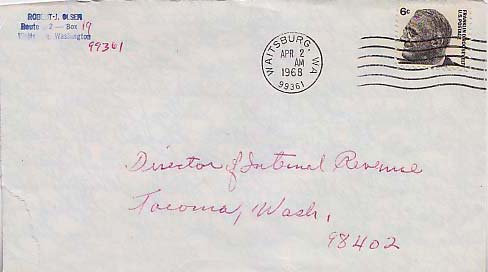 ROBERT J. OLSEN
Route 2 — Box 19
Washington
99361
WAITSBURG, WA
APR 2
AM
1968
99361
6c
FRANKLIN D. ROOSEVELT
U.S. POSTAGE
Director of Internal Revenue
Tacoma, Wash,
98402